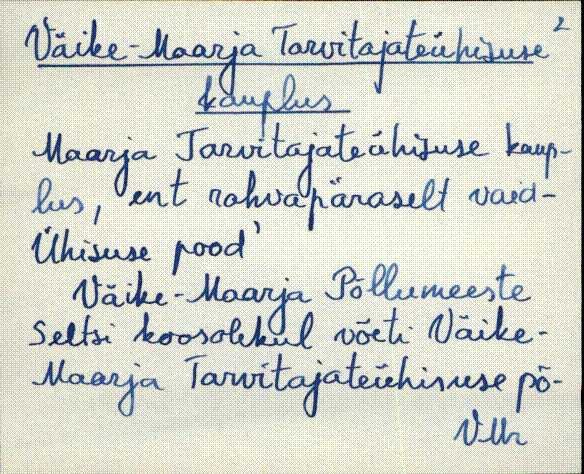 Väike-Maarja Tarvitajateühisuse 2
kauplus
Maarja Tarvitajateühisuse kaup-
lus, ent rahvapäraselt vaid-
Ühisuse pood'
Väike-Maarja Põllumeeste
Seltsi koosolekul võeti Väike-
Maarja Tarvitajateühisuse põ-